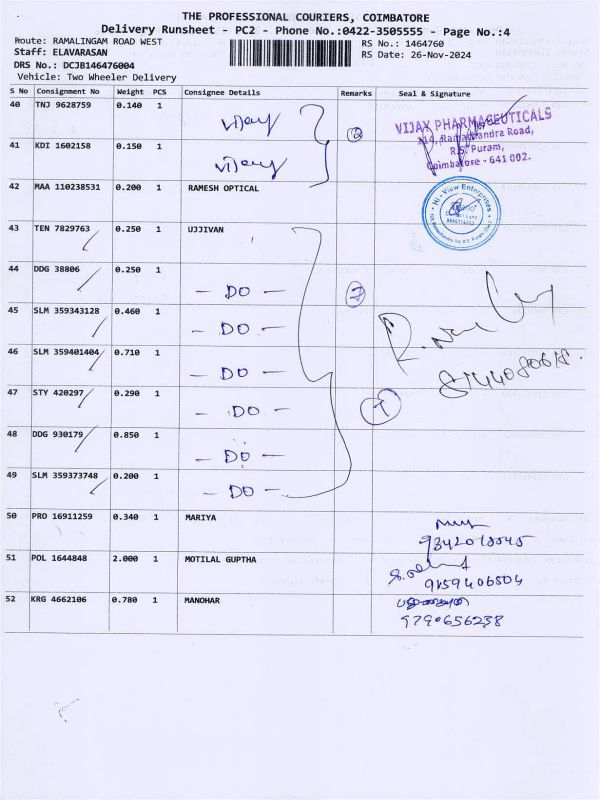 THE PROFESSIONAL COURIERS, COIMBATORE
Delivery Runsheet - PC2 - Phone No.:0422-3505555 - Page No.:4
Route: RAMALINGAM ROAD WEST RS No.: 1464760
Staff: ELAVARASAN RS Date: 26-Nov-2024
DRS No.: DCJB146476004
Vehicle: Two Wheeler Delivery
S No Consignment No Weight PCS Consignee Details Remarks Seal & Signature
40 TNJ 9628759 0.140 1 Vijay
VIJAX PHARMACEUTICALS
114, Ramachandra Road,
R.S. Puram,
Coimbatore - 641 002.
41 KDI 1602158 0.150 1 Vijay
42 MAA 110238531 0.200 1 RAMESH OPTICAL
Hi - View Enterprises
43 TEN 7829763 0.250 1 UJJIVAN
44 DDG 38806 0.250 1 - DO - 7
45 SLM 359343128 0.460 1 - DO -
46 SLM 359401404 0.710 1 - DO -
47 STY 420297 0.290 1 - DO - 7
48 DDG 930179 0.850 1 - DO -
49 SLM 359373748 0.200 1 - DO -
50 PRO 16911259 0.340 1 MARIYA
51 POL 1644848 2.000 1 MOTILAL GUPTHA
9159406504
52 KRG 4662106 0.780 1 MANOHAR
9790656238